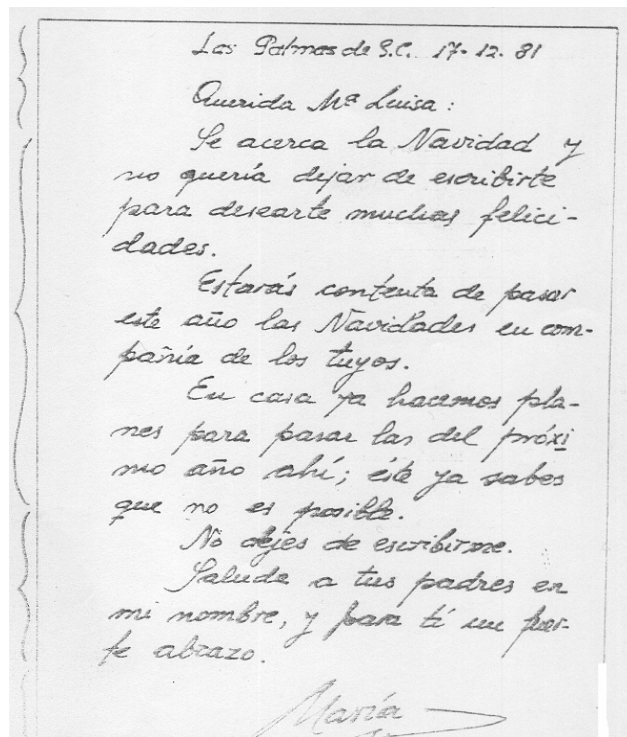 Las Palmas de G.C. 17-12-81
Querida Mª Luisa:
Se acerca la Navidad y
no quería dejar de escribirte
para desearte muchas felici-
dades.
Estarás contenta de pasar
este año las Navidades en com-
pañia de los tuyos.
En casa ya hacemos pla-
nes para pasar las del próxi
mo año ahí; éste ya sabes
que no es posible.
No dejes de escribirme.
Saluda a tus padres en
mi nombre, y para tí un fuer-
te abrazo.
María